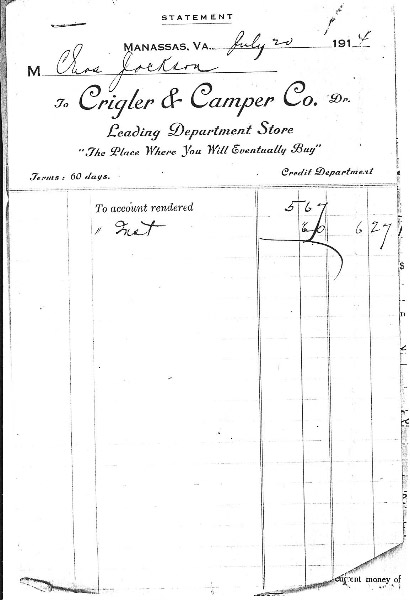 STATEMENT
MANASSAS, VA., July 20 1914
M Chas Jackson
To Crigler & Camper Co. Dr.
Leading Department Store
"The Place Where You Will Eventually Buy"
Terms: 60 days. Credit Department
To account rendered 5 67
" Inst 60 6 27
current money of